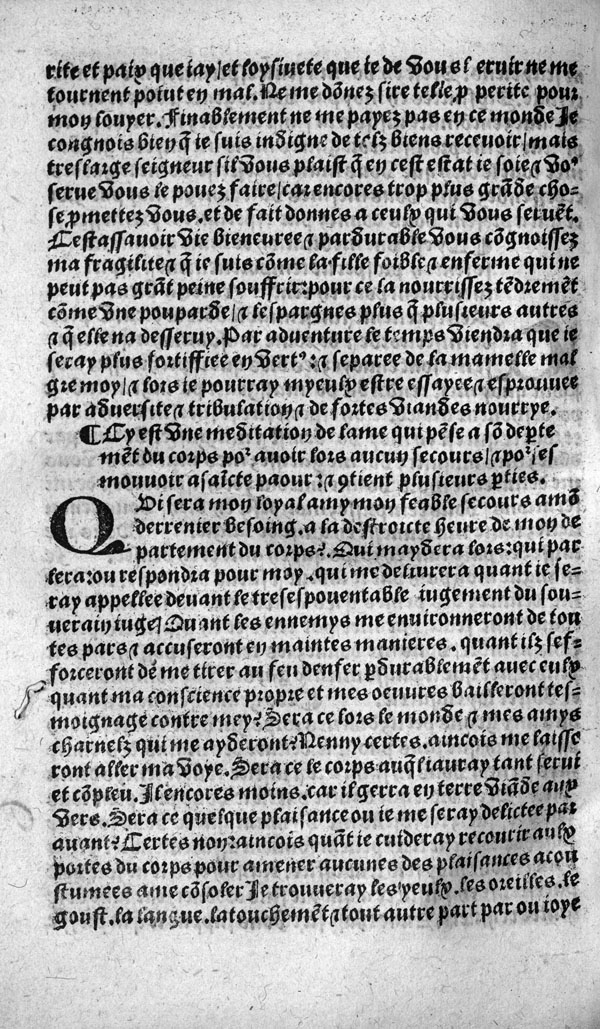 rite et paix que iay/et loysiuete que ie de vous s eruir ne me
tournent point en mal. Ne me dõnez sire telle p̱ perite pour
moy louyer. Finablement ne me payez pas en ce monde Je
congnois bien q̃ ie suis indigne de telz biens receuoir/mais
treslarge seigneur sil vous plaist q̃ en cest estat ie soie ⁊ voꝰ
serue vous le pouez faire/car encores trop plus grãde cho-
se ꝓmettez vous. et de fait donnes a ceulx qui vous seruẽt.
Cestassauoir vie bieneuree ⁊ pardurable vous cõgnoissez
ma fragilite ⁊ q̃ ie suis cõme la fille foible ⁊ enferme qui ne
peut pas grãt peine souffrir: pour ce la nourrissez tẽdremẽt
cõme vne pouparde/⁊ lespargnes plus q̃ plusieurs autres
⁊ q̃ elle na desseruy. Par aduenture le temps viendra que ie
seray plus fortiffiee en vertꝰ: ⁊ separee de la mamelle mal
gre moy/⁊ lors ie pourray myeulx estre essayee ⁊ esprouuee
par aduersite ⁊ tribulation ⁊ de fortes viandes nourrye.
¶ Cy est vne meditation de lame qui pẽse a sõ deꝑte
mẽt du corps poꝛ auoir lors aucun secours/⁊ poꝛ/es
mouuoir a saĩcte paour: ⁊ ꝯtient plusieurs ꝑties.
Qui sera mon loyal amy mon feable secours a mõ
derrenier besoing. a la destroicte heure de mon de
partement du corps?. Qui maydera lors: qui par
lera: ou respondra pour moy. qui me deliurera quant ie se-
ray appellee deuant le tresespouentable iugement du sou-
uerain iuge? Quant les ennemys me enuironneront de tou
tes pars ⁊ accuseront en maintes manieres. quant ilz sef-
forceront de me tirer au feu denfer ꝑdurablemẽt auec eulx
quant ma conscience propre et mes oeuures bailleront tes-
moignage contre mey? Sera ce lors le monde ⁊ mes amys
charnelz qui me ayderont? Nenny certes. aincois me laisse
ront aller ma voye. Sera ce le corps auq̃l iauray tant serui
et cõpleu. Il encores moins. car il gerra en terre viãde aux
vers. Sera ce quelque plaisance ou ie me seray delictee par
auant? Certes non: aincois quãt ie cuideray recourir aulx
portes du corps pour amener aucunes des plaisances acou
stumees a me cõsoler Je trouueray les yeulx. les oreilles. le
goust. la langue. latouchemẽt ⁊ tout autre part par ou ioye